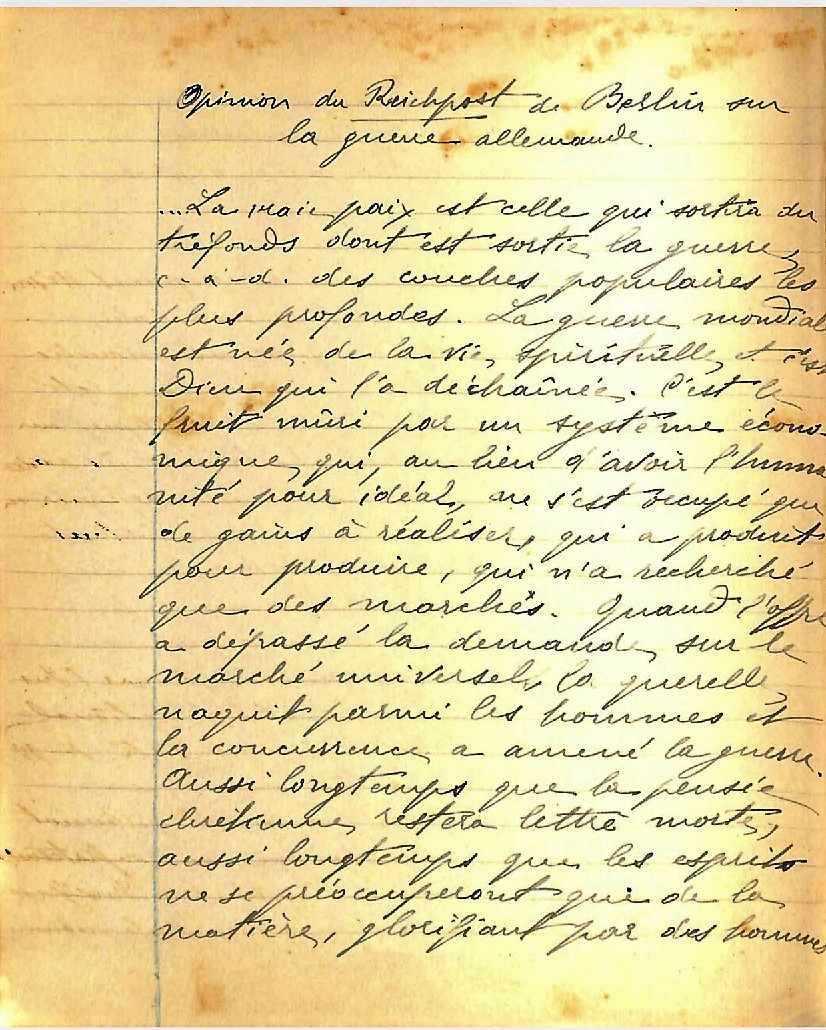 Opinion du Reichpost de Berlin sur
la guerre allemande.
...La vraie paix est celle qui sortira du
tréfonds dont est sortie la guerre,
c.-à-d. des couches populaires les
plus profondes. La guerre mondial
est née de la vie spirituelle et c'est
Dieu qui l'a déchaînée. C'est le
fruit mûri par un système écono-
mique qui, au lieu d'avoir l'huma
nité pour idéal, ne s'est occupé que
de gains à réaliser, qui a produit
pour produire, qui n'a recherché
que des marchés. Quand l'offre
a dépassé la demande sur le
marché universel, la querelle
naquit parmi les hommes et
la concurrence a amené la guerre.
Aussi longtemps que la pensée
chrétienne restera lettre morte,
aussi longtemps que les esprits
ne se préoccuperont que de la
matière, glorifiant par des hommes